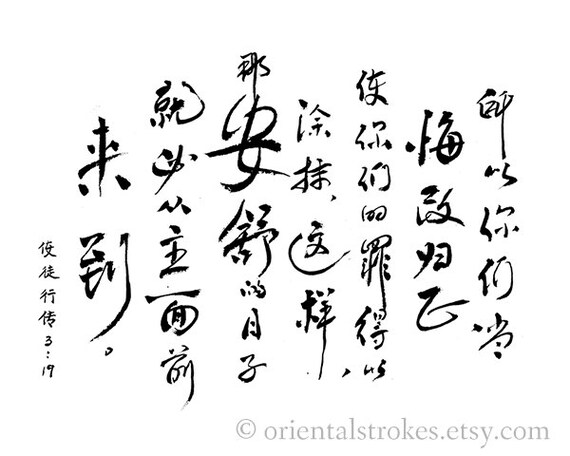 所以你们当
悔改归正
使你们的罪得以，
涂抹，这样
那安舒的日子
就必从主面前
来到。
使徒行传3：19
© orientalstrokes.etsy.com